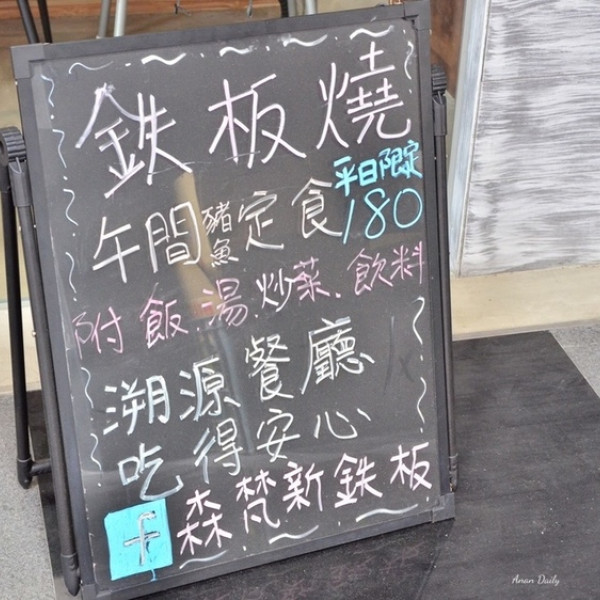 鉄板燒
午間豬魚定食平日限定180
附飯.湯.炒菜.飲料
溯源餐廳
吃得安心
f森梵新鉄板
Aman Daily